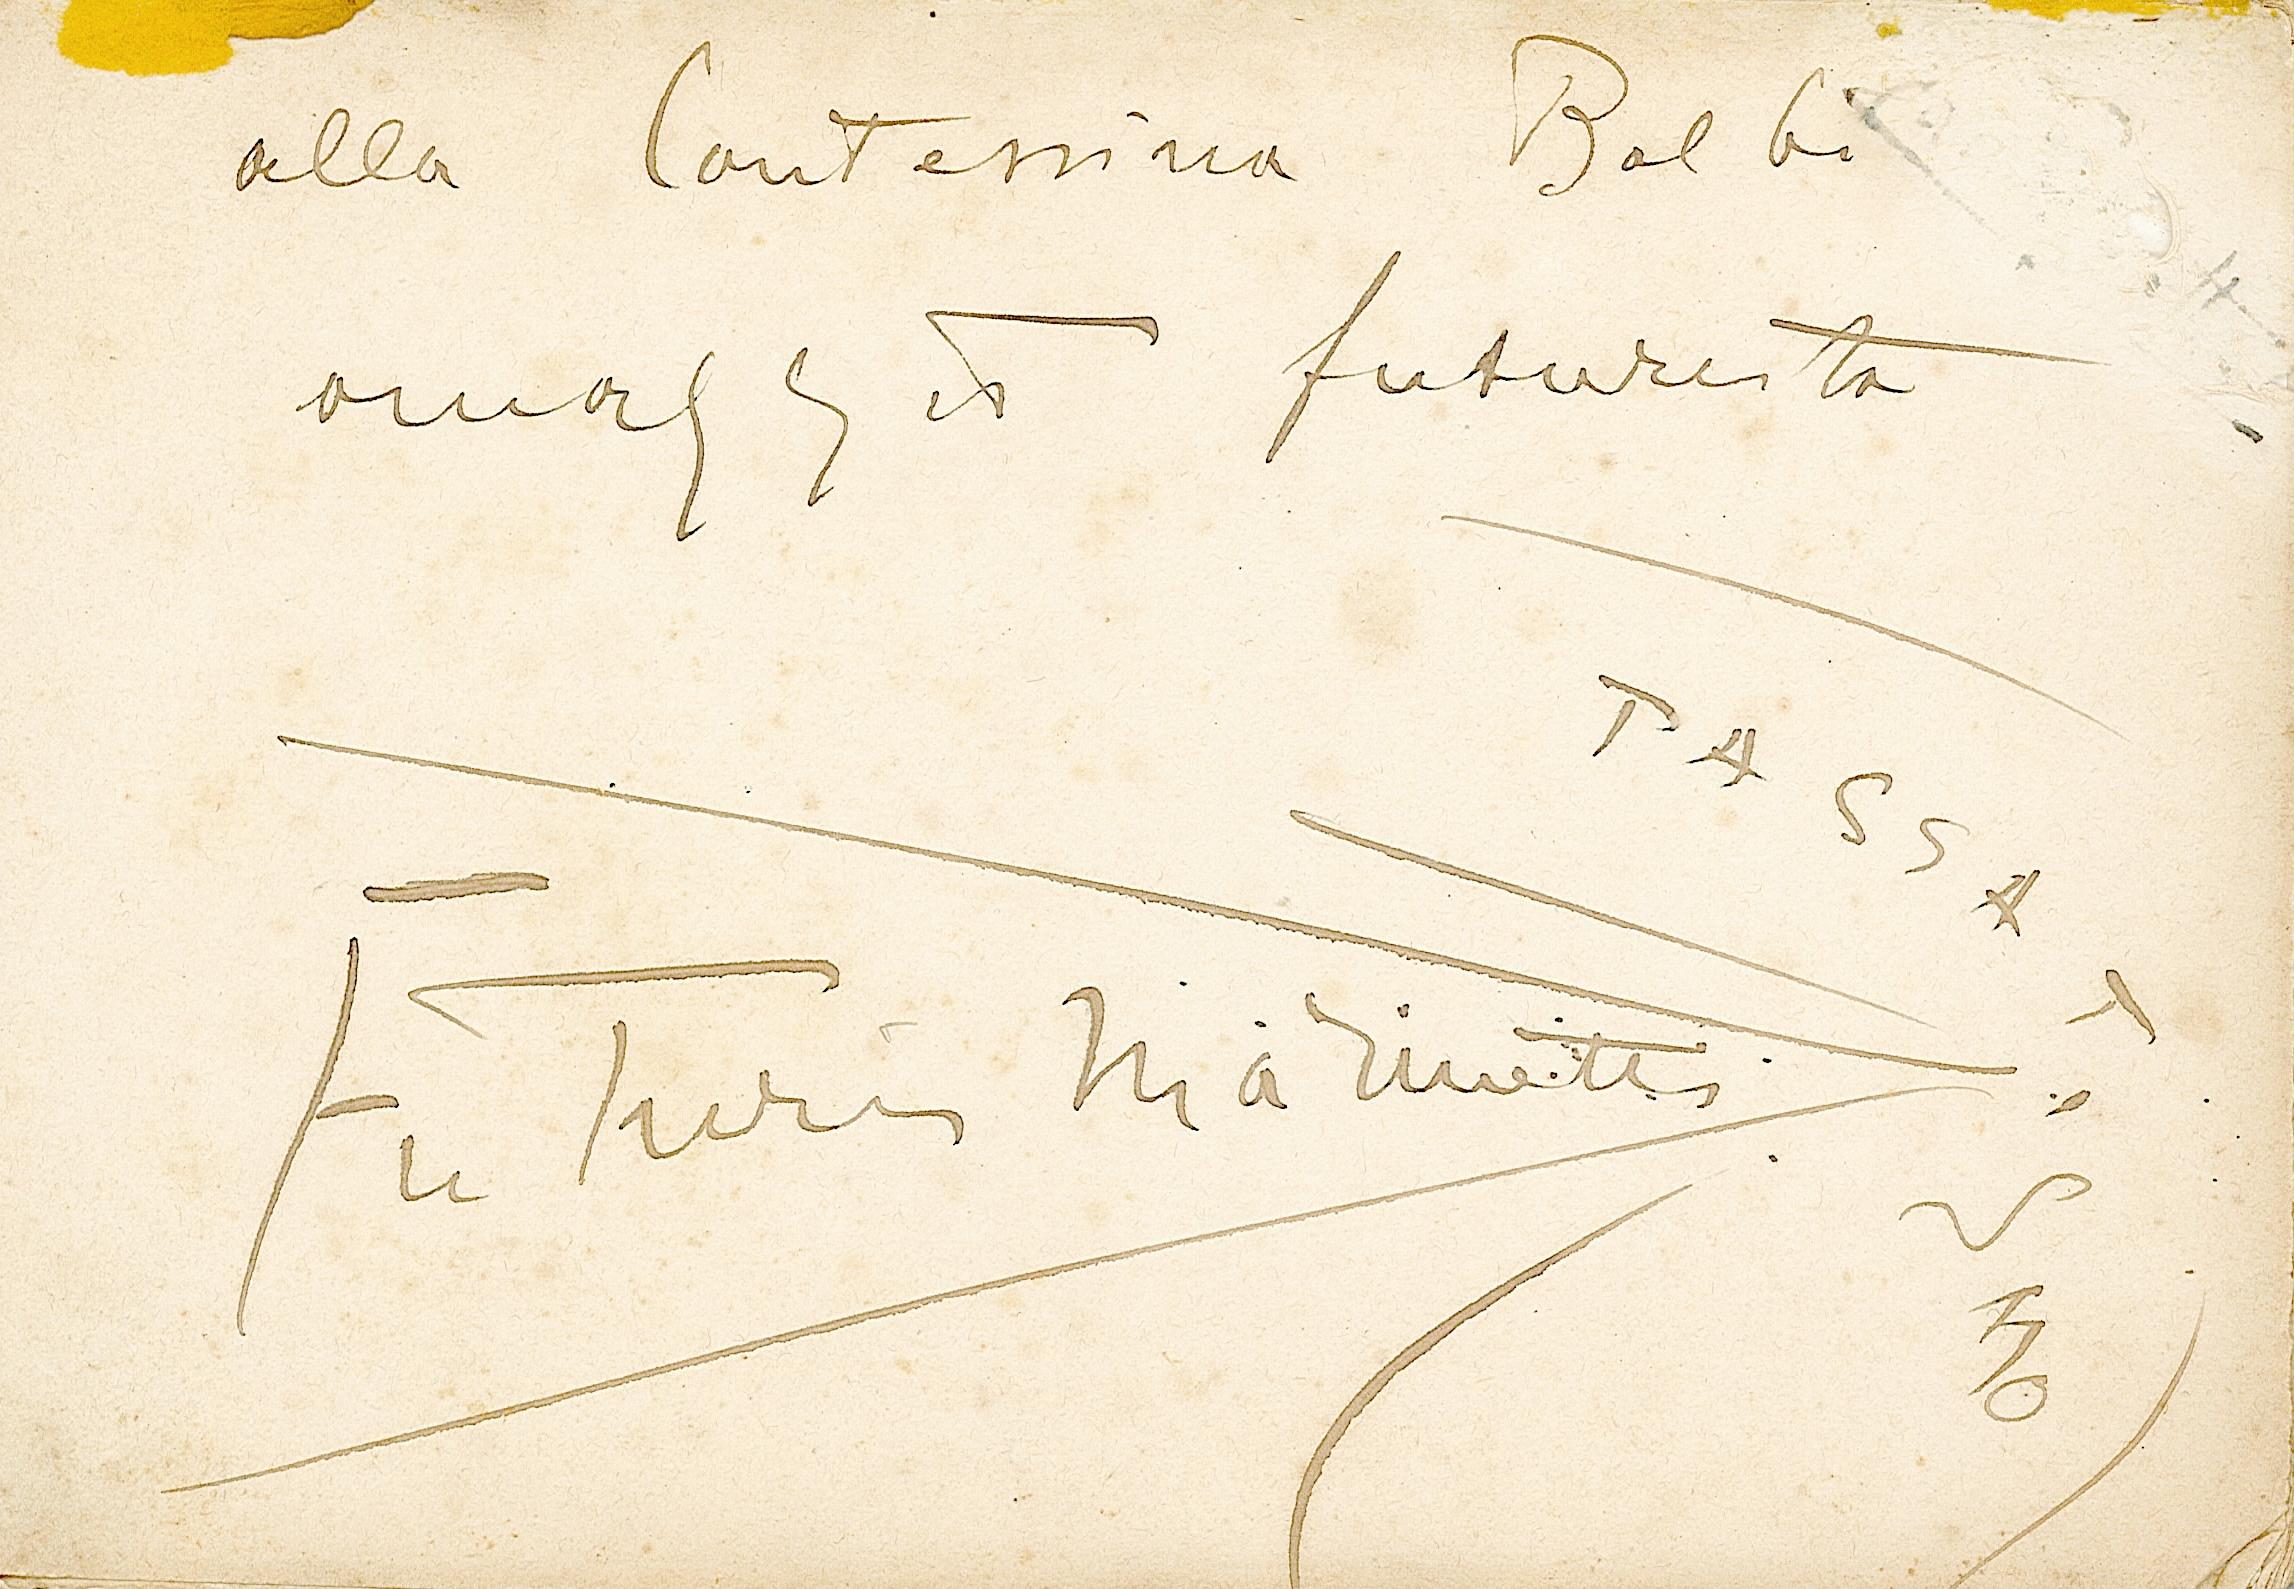 alla Contessina Balbi
omaggio futurista
PASSATISMO
Futuris Marinetti